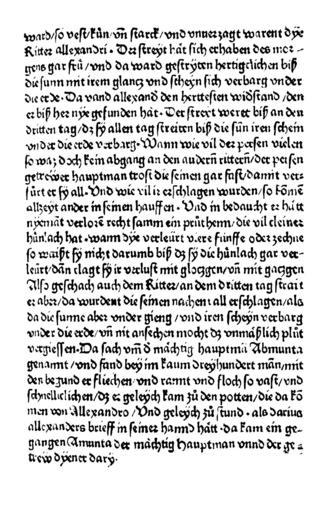 ward/so vest/kün/vñ starck/vnd vnuerzagt warent dye
Ritter allexandri. Der streyt hat sich erhaben des mor⸗
gens gar frü/vnd da ward gestryten hertigclichen biß
die sunn mit irem glancz vnd scheyn sich verbarg vnder
die erde. Da vand allexand den hertesten widstand/den
er biß her nye gefunden hat. Der streyt weret biß an den
dritten tag/dz sy allen tag streiten biß die sün iren schein
vnder die erde verbarg. Wann wie vil der persen vielen
so waz doch kein abgang an den andern rittern/der persen
getrewer hauptman trost die seinen gar fast/damit ver⸗
fürt er sy all. Vnd wie vil ir erschlagen wurden/so komē
allzeyt ander in seinen hauffen. Vnd in bedaucht er hatt
nyemāt verlorē recht samm ein prüthenn/die vil cleiner
hünlach hat. wann dye verleürt viere fünffe oder zechne
so waißt sy nicht darumb biß dz sy die hünlach gar ver⸗
leürt/dañ clagt sy ir verlust mit gloczgen/vñ mit gaczgen
Also geschach auch dem Ritter/an dem dritten tag strait
er aber/da wurdent die seinen nachent all erschlagen/als
da die sunne aber vnder gieng/vnd iren scheyn verbarg
vnder die erde/vñ nit ansechen mocht dz vnmäßlich plüt
vergiessen. Da sach vm̃ d mächtig hauptmā Abmunta
genamt/vnd fand bey im kaum dreyhundert man/mit
den begund er fliechen/vnd rannt vnd floch so vast/vnd
schnelliclichen/dz er geleych kam zu den potten/die da kō
men von Allexandro/Vnd geleych zu stund. als darius
allexanders brieff in seiner hannd hatt. da kam ein ge⸗
gangen Amunta der mächtig hauptman vnnd der ge⸗
trew dyener dary.